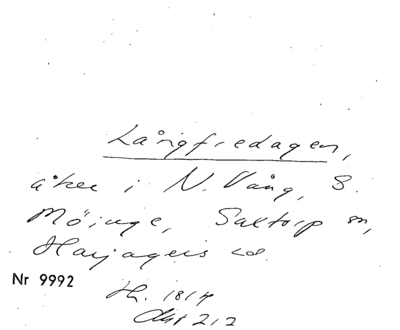 Långfredagen,
åker i N. Vång, S.
Möinge, Saxtorp sn,
Harjagers hd
Nr 9992
H. 1814
Akt 212